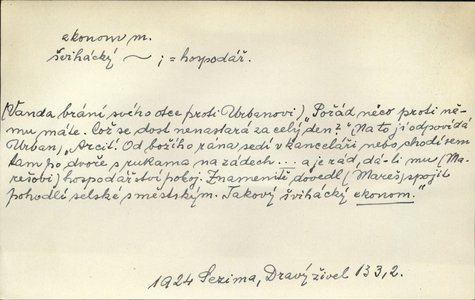 ekonom m.
švihácký ~ ; = hospodář.
(Vanda brání svého otce proti Urbanovi) „Pořád něco proti ně-
mu máte. Což se dost nenastará za celý den?" (Na to jí odpovídá
Urban) „Arciť. Od božího rána sedí v kanceláři nebo chodí sem
tam po dvoře s rukama na zádech... a je rád, dá-li mu (Ma-
rešobi) hospodářství pokoj. Znamenitě dovedl (Mareš) spojit
pohodlí selské s městským. Takový švihácký ekonom."
1924 Sezima, Dravý živel 133,2.